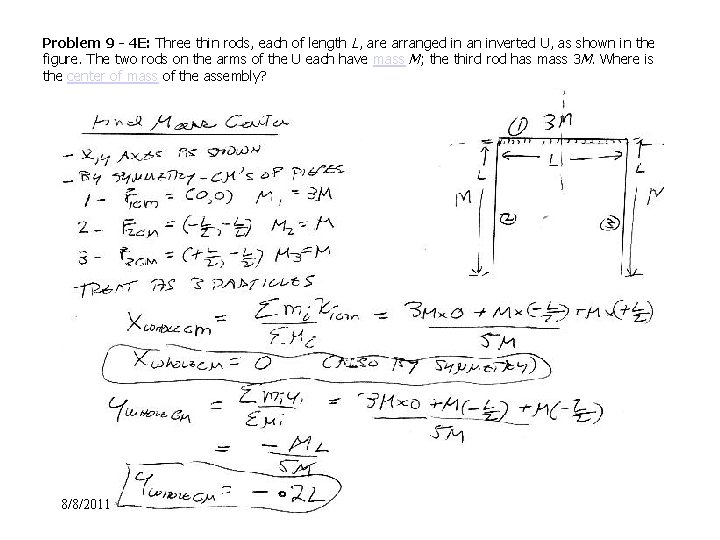 Problem 9 – 4E: Three thin rods, each of length L, are arranged in an inverted U, as shown in the
figure. The two rods on the arms of the U each have mass M; the third rod has mass 3M. Where is
the center of mass of the assembly?
Find Mass Center
- X,Y AXES AS SHOWN
- BY SYMMETRY - CM'S OF PIECES
1 - r̄1cm = (0,0) M1 = 3M
2 - r̄2cm = (-L/2, -L/2) M2 = M
3 - r̄2cm = (+L/2, -L/2) M3 = M
-TREAT AS 3 PARTICLES
X whole cm = Σ mi xicm / Σ Mi = 3M×0 + M×(-L/2) + M×(+L/2) / 5M
X whole cm = 0 (ALSO BY SYMMETRY)
Y whole cm = Σ mi yi / Σ Mi = 3M×0 + M(-L/2) + M(-L/2) / 5M
= - ML / 5M
Y whole cm = - .2L
① 3M
L
L
L
M
M
②
③
8/8/2011